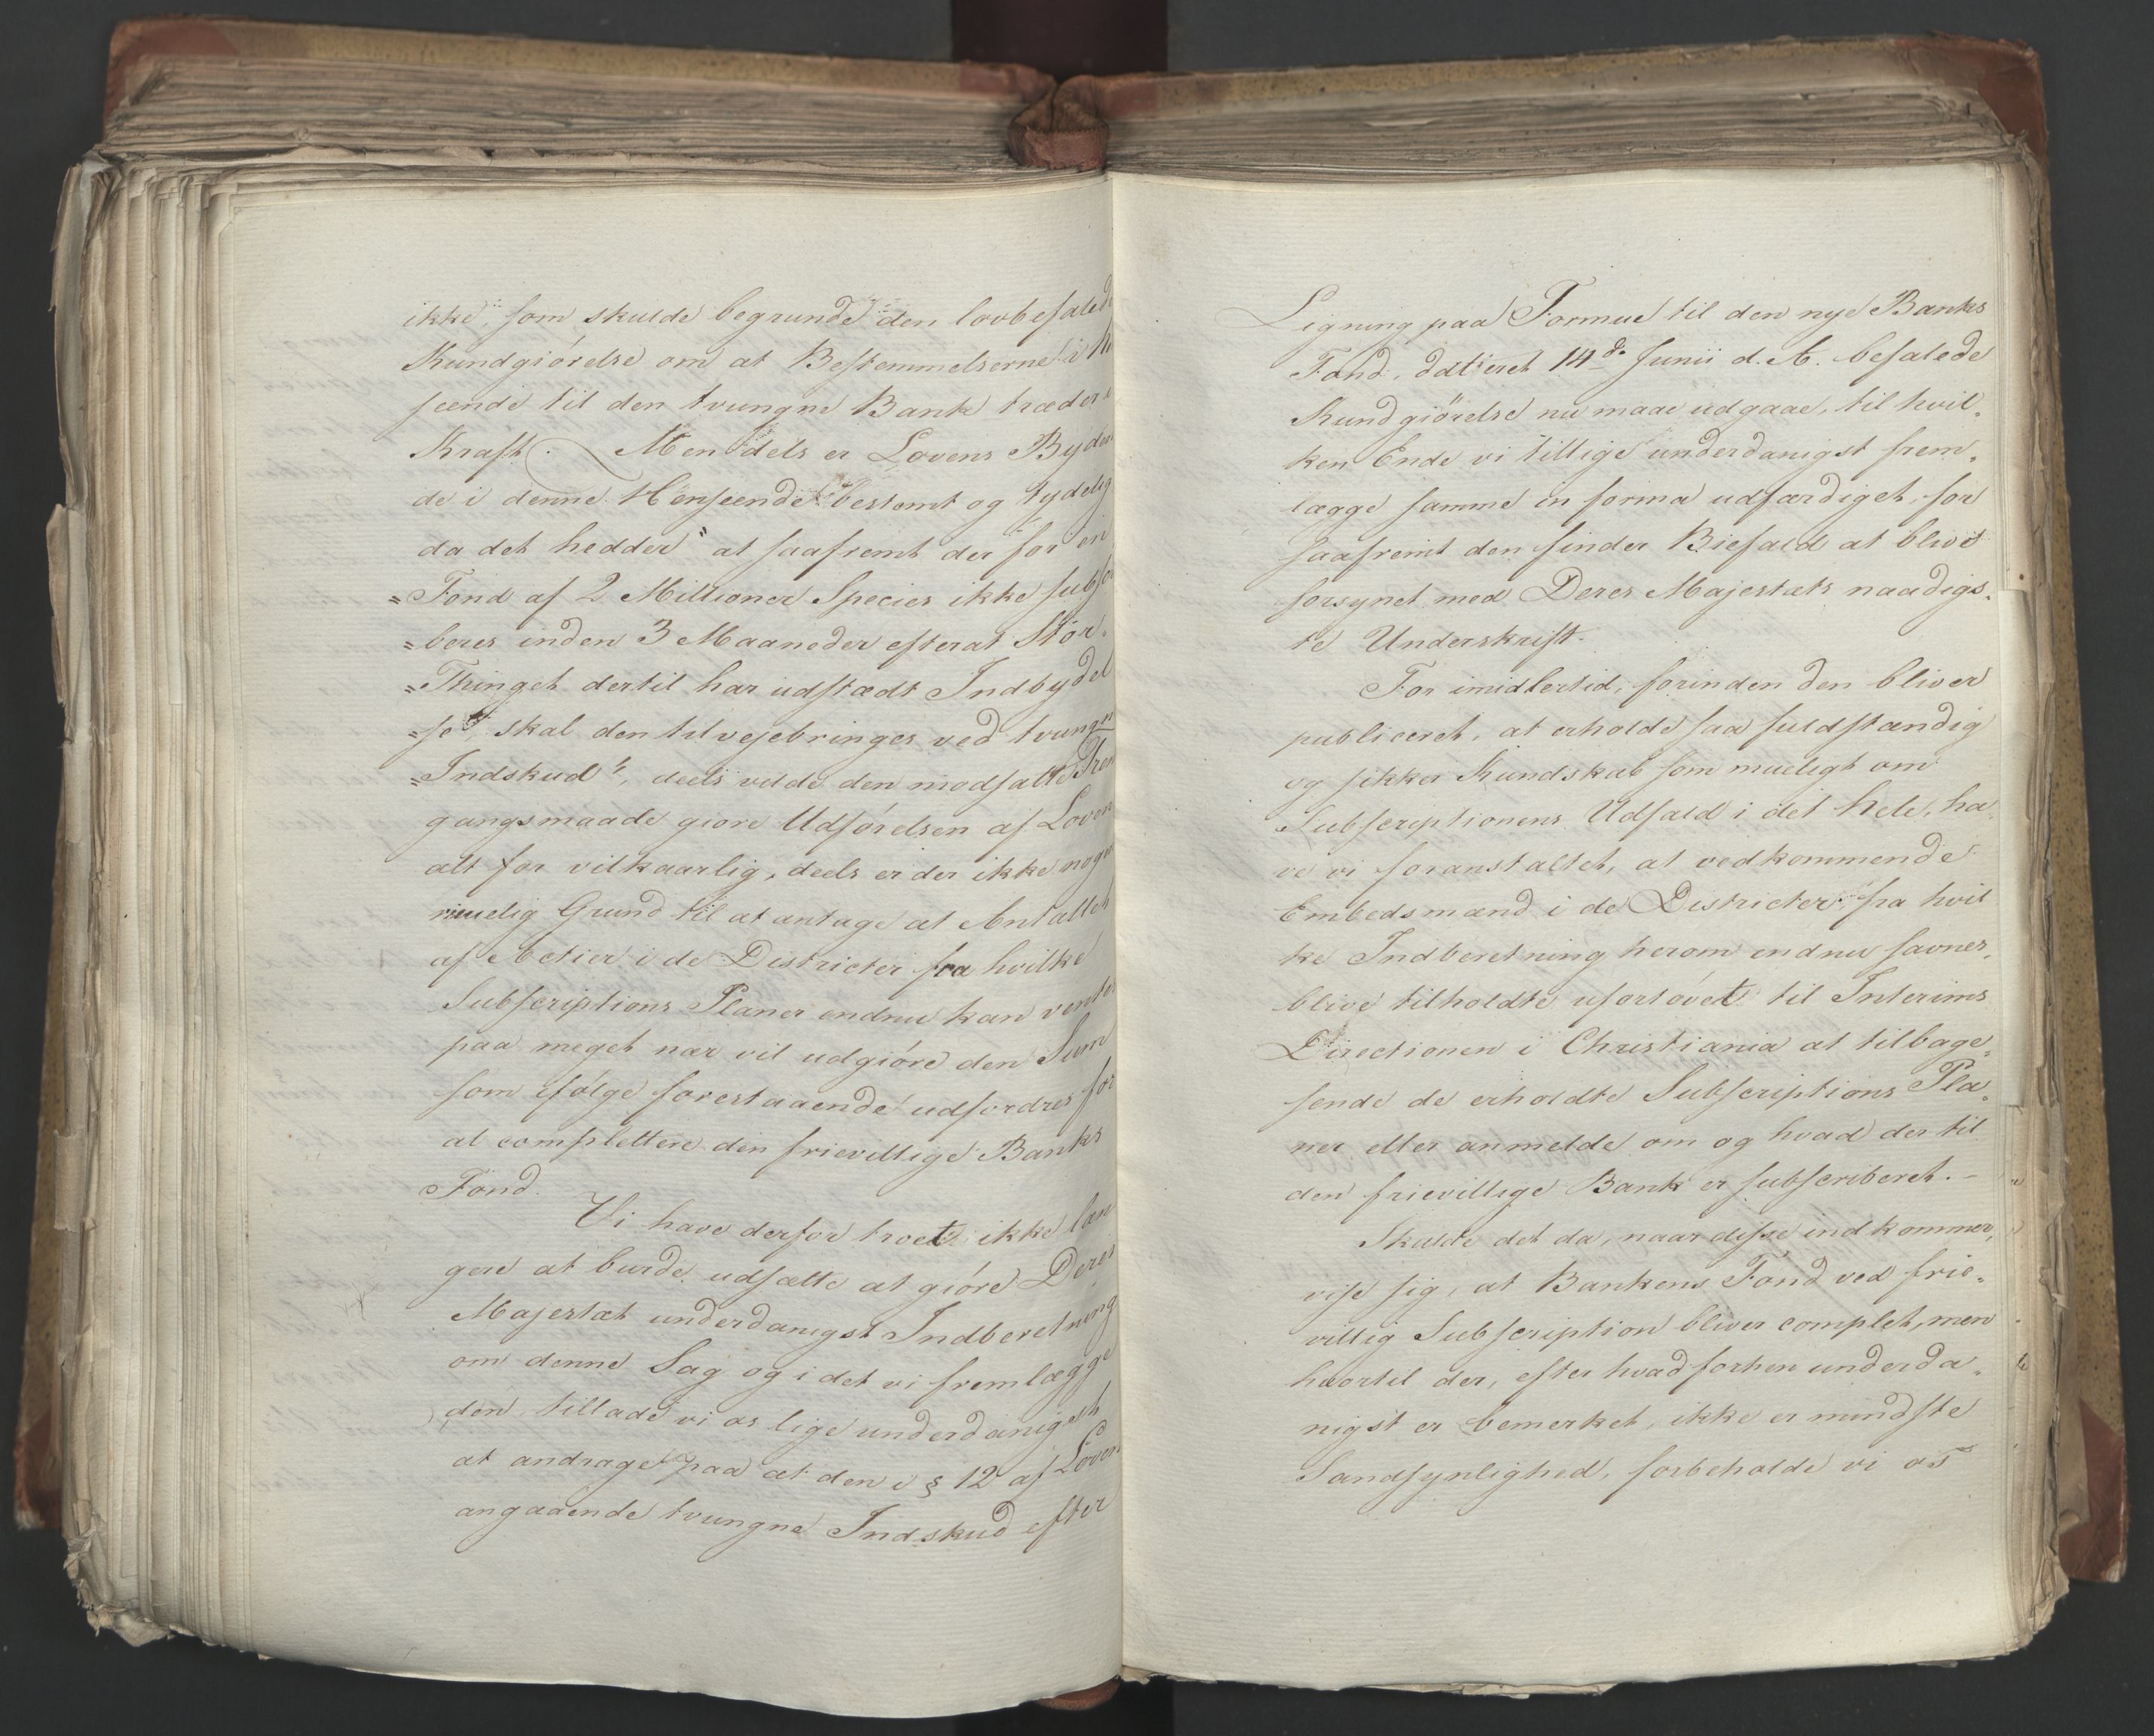 ikke, som skulde begrunde den lovbefalede
Kundgiørelse om at Bestemmelserne i
seende til den tvungne Bank træder i
Kraft. Men dels er Lovens Byden
de i denne Henseende bestemt og tydelig
da det hedder " at saafremt der for en
"Fond af 2 Millioner Species ikke subscri
"beres inden 3 Maaneder efterat Stor-
"Thinget dertil har udstædt Indbydel
"se, skal den tilvejebringes ved tvungne
"Indskud", deels vilde den modsatte Frem
gangsmaade giøre Udførelsen af Loven
alt for vilkaarlig, deels er der ikke nogen
rimelig Grund til at antage at Antallet
af Actier i de Districter fra hvilke
Subscriptions Planer endnu kan ventes
paa meget nær vil udgiøre den Sum
som ifølge forestaaende udfordres for
at complettere den frievillige Banks
Fond.
Vi have derfor troet ikke læn
gere at burde udsætte at giøre Deres
Majestæt underdanigst Indberetning
om denne Sag og i det vi fremlægge
den, tillade vi os lige underdanigst
at andrage paa at den i § 12 af Loven
angaaende tvungne Indskud efter
Ligning paa Formue til den nye Banks
Fond, datteret 14de Junii d. A. befalede
Kundgiørelse nu maae udgaae, til hvil-
ken Ende vi tillige underdanigst frem-
lægge samme in forma udfærdiget, for
saafremt den finder Biefald at blive
forsynet med Deres Majestæts naadigs-
te Underskrift.
For imidlertid, forinden den bliver
publiceret, at erholde saa fuldstændig
og sikker Kundskab som mueligt om
Subscriptionens Udfald i det hele, ha
ve vi foranstaltet, at vedkommende
Embedsmænd i de Districter, fra hvil
ke Indberetning herom endnu savnes,
blive tilholdte ufortøvet til Interims
Directionen i Christiania at tilbage-
sende de erholdte Subscriptions Pla-
ner eller anmelde om og hvad der til
den frievillige Bank er subscriberet. -
Skulde det da, naar disse indkommer,
vise sig, at Bankens Fond ved frie-
villig Subscription bliver complet, men
hvortil der, efter hvad forhen underda-
nigst er bemerket, ikke er mindste
Sandsynlighed, forbeholde vi os